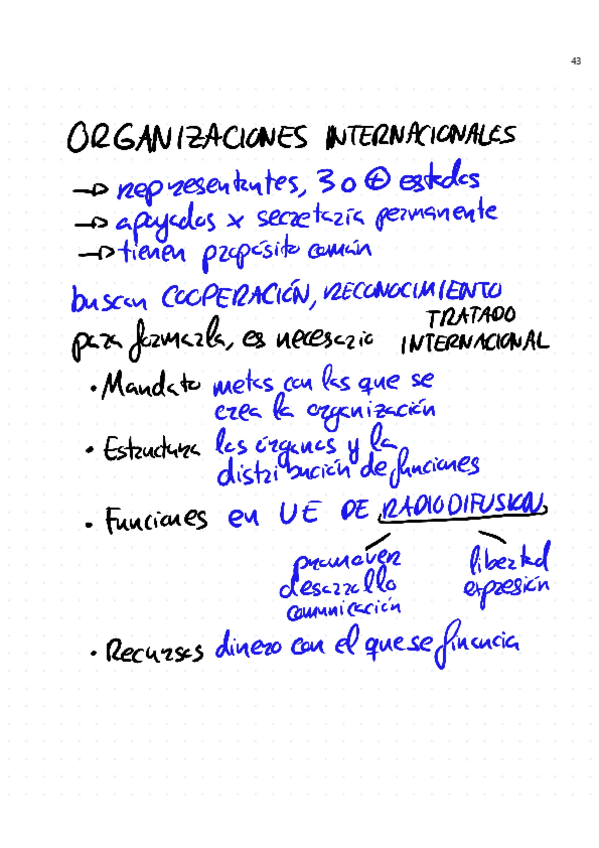 43
ORGANIZACIONES INTERNACIONALES
→ representantes, 3 o ⊕ estados
→ apoyados x secretaría permanente
→ tienen propósito común
buscan COOPERACIÓN, RECONOCIMIENTO
para formarla, es necesario TRATADO INTERNACIONAL
• Mandato metas con las que se
crea la organización
• Estructura los órganos y la
distribución de funciones
• Funciones en UE DE RADIODIFUSION.
promover libertad
desarrollo expresión
comunicación
• Recursos dinero con el que se financia